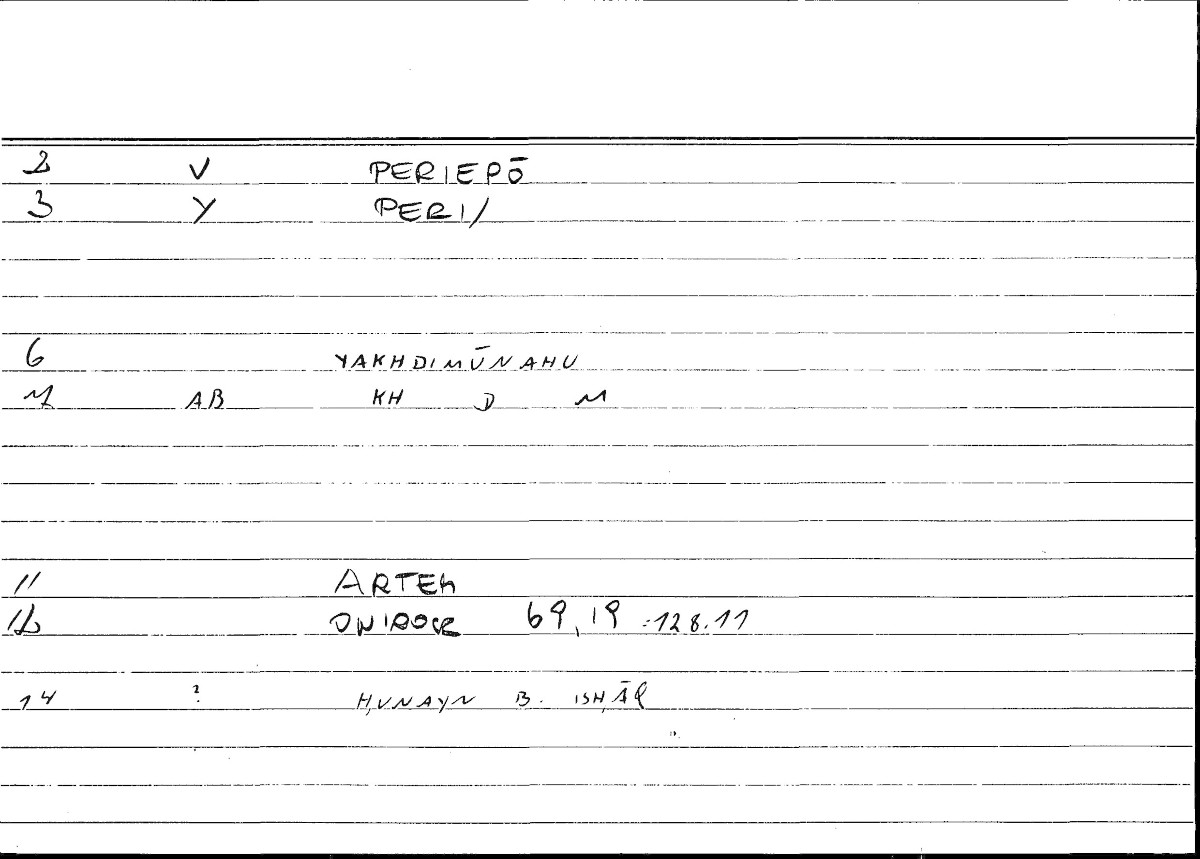 2 V PERIEPŌ
3 Y PERI/
6 YAKHDIMŪNAHU
7 AB KH D M
11 ARTEM
12 ONIROCR 69,19 :128.11
14 ? ḤUNAYN B. ISḤĀQ